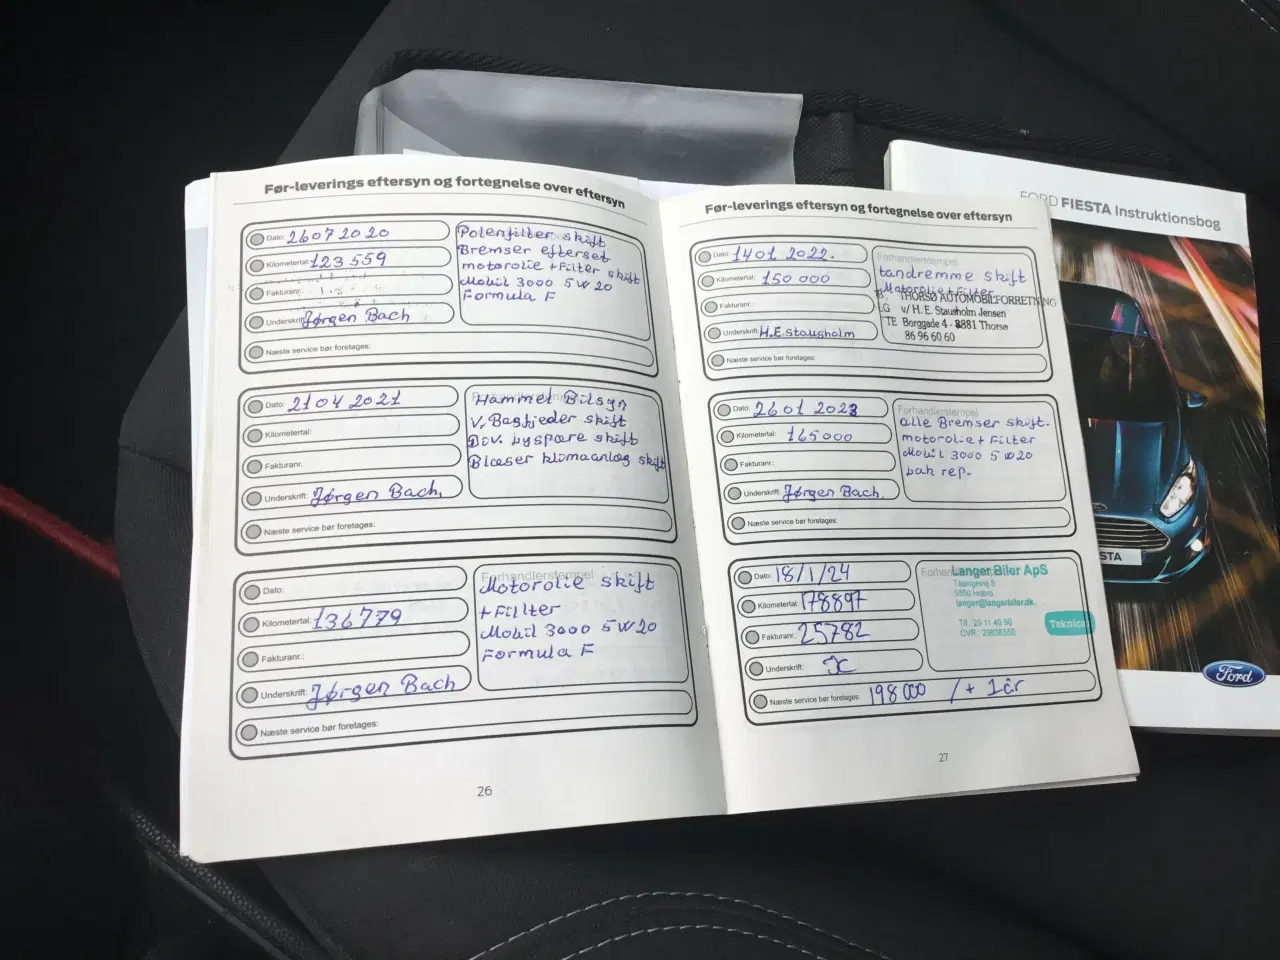 Før-leverings eftersyn og fortegnelse over eftersyn
Dato: 26 07 20 20
Kilometertal: 123 559
Fakturanr.:
Underskrift: Jørgen Bach
Næste service bør foretages:
Polenfilter skift
Bremser efterset
motorolie + Filter skift
Mobil 3000 5W20
Formula F
Dato: 21 04 2021
Kilometertal:
Fakturanr.:
Underskrift: Jørgen Bach,
Næste service bør foretages:
Hammel Bilsyn
V. Bagfjeder skift
Div. pyspare skift
Blæser klimaanlæg skift
Dato:
Kilometertal: 136779
Fakturanr.:
Underskrift: Jørgen Bach
Næste service bør foretages:
Forhandlerstempel
Motorolie skift
+ Filter
Mobil 3000 5W20
Formula F
26
Før-leverings eftersyn og fortegnelse over eftersyn
Dato: 14 01 2022.
Kilometertal: 150 000
Fakturanr.:
Underskrift: H.E. Stausholm
Næste service bør foretages:
Forhandlerstempel
tandremme skift
Motorolie + Filter
THORSØ AUTOMOBILFORRETNING
v/ H. E. Stausholm Jensen
Borggade 4 - 8881 Thorsø
86 96 60 60
Dato: 26 01 2023
Kilometertal: 165000
Fakturanr.:
Underskrift: Jørgen Bach.
Næste service bør foretages:
Forhandlerstempel
alle Bremser skift.
motorolie + Filter
Mobil 3000 5W20
bak rep.
Dato: 18/1/24
Kilometertal: 178897
Fakturanr.: 25782
Underskrift: JC
Næste service bør foretages: 198 000 / + 1 år
Langer Biler ApS
9550 Hobro
langer@langerbiler.dk
Tlf. 29 11 49 90
Teknicar
27
FORD FIESTA Instruktionsbog
STA
Ford